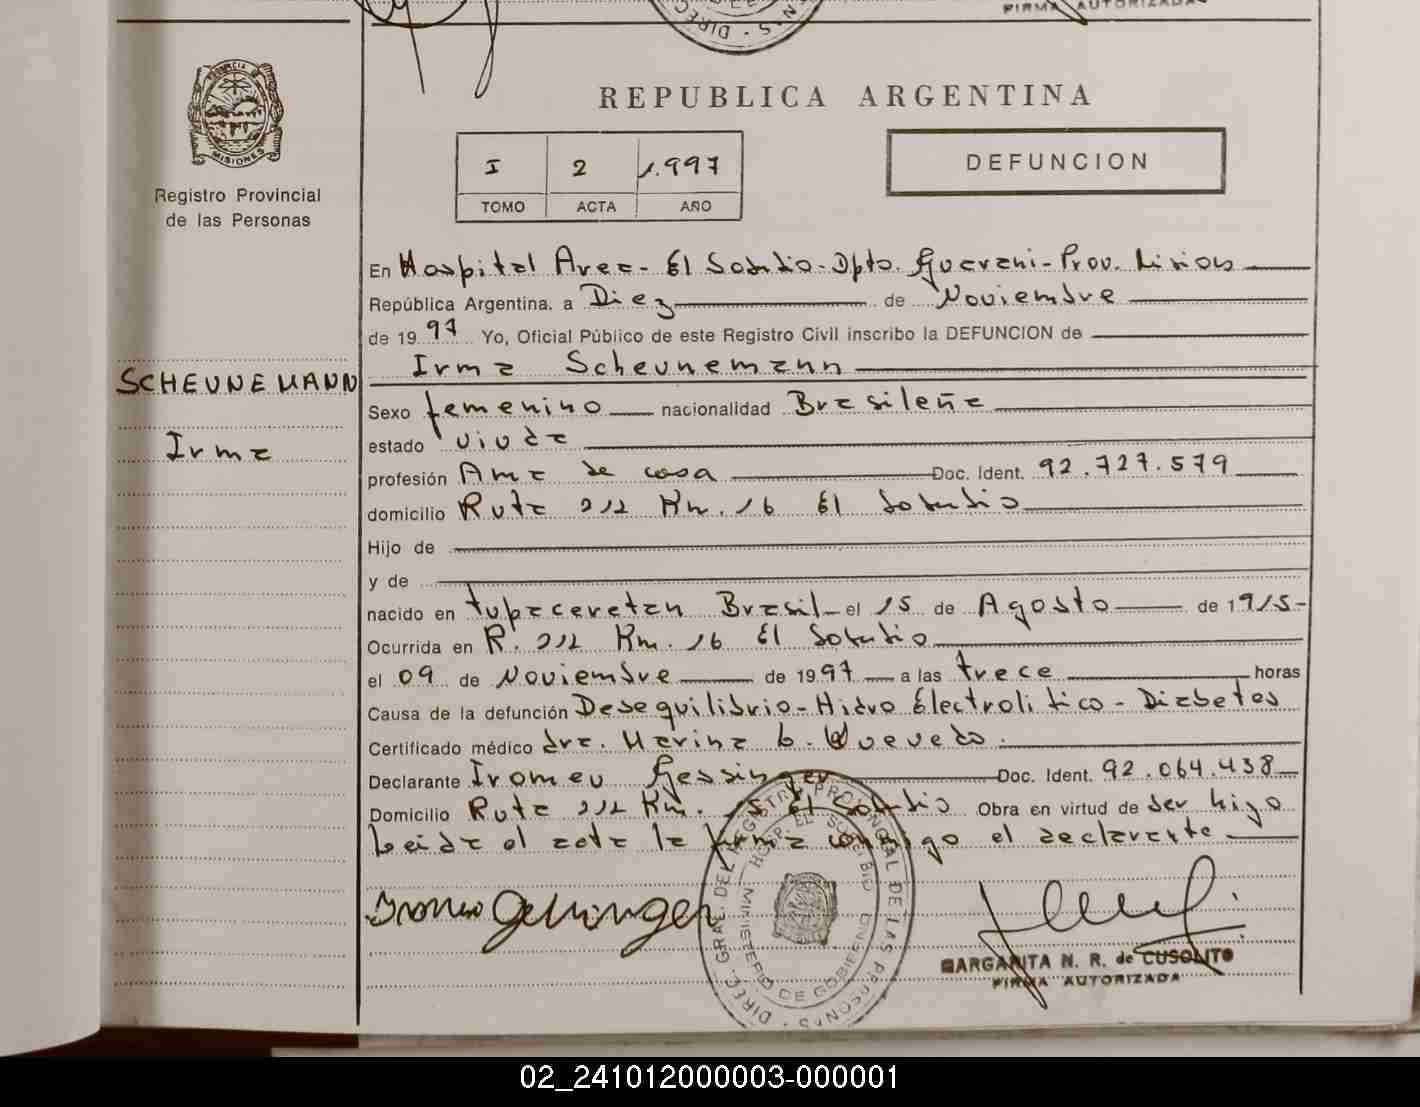 FIRMA AUTORIZADA
PROVINCIA DE
MISIONES
Registro Provincial
de las Personas
REPUBLICA ARGENTINA
I 2 1.997
TOMO ACTA AÑO
DEFUNCION
En Hospital Area - El Soberbio - Dpto. Guarani - Prov. Misiones
República Argentina. a Diez de Noviembre
de 19 97 Yo, Oficial Público de este Registro Civil inscribo la DEFUNCION de
Irma Scheunemann
SCHEUNEMANN
Irma
Sexo femenino nacionalidad Brasileña
estado viuda
profesión Ama de casa Doc. Ident. 92.727.579
domicilio Ruta 212 Km. 16 El Soberbio
Hijo de
y de
nacido en tupaceretan Brasil - el 15 de Agosto de 1915 -
Ocurrida en R. 212 Km. 16 El Soberbio
el 09 de Noviembre de 1997 a las trece horas
Causa de la defunción Desequilibrio - Hidro Electrolitico - Diabetes
Certificado médico dra. Marina b. Quevedo.
Declarante Iromeu Gessinger Doc. Ident. 92.064.438
Domicilio Ruta 212 Km. 15 El Soberbio Obra en virtud de ser hijo
Leida el acta la firma conmigo el declarante
Iromeu Gessinger
DIREC. GRAL. DEL REGISTRO PROVINCIAL DE LAS PERSONAS
HOSP. EL SOBERBIO
MINISTERIO DE GOBIERNO
MARGARITA N. R. de CUSOLITO
FIRMA AUTORIZADA
02_241012000003-000001